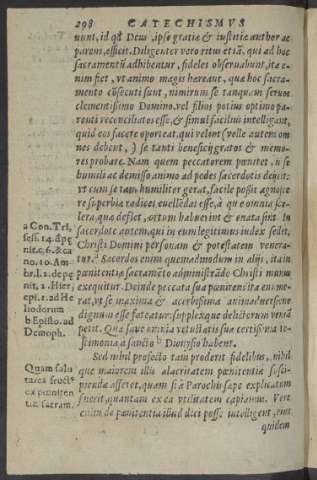 298 CATECHISMVS
runt, id quod Deus, ipse gratiæ & iustitiæ author ac
parens, efficit. Diligenter vero ritus etiã, qui ad hoc
sacramentũ adhibentur, fideles obseruabunt, ita e-
nim fiet, vt animo magis hæreant, quæ hoc sacra-
mento cõsecuti sunt, nimirum se tanquam seruos
clementissimo Domino, vel filios potius optimo pa-
renti reconciliatos esse, & simul facilius intelligant,
quid eos facere oporteat, qui velint (velle autem om-
nes debent,) se tanti beneficij gratos & memo-
res probare. Nam quem peccatorem pœnitet, is se
humili ac demisso animo ad pedes sacerdotis deijcit:
vt cum se tam humiliter gerat, facile possit agnosce-
re superbiæ radices euellēdas esse, à quæ omnia sce-
lera, quæ deflet, ortum habuerint & enata sint. In
sacerdote autem, qui in eum legitimus iudex sedet,
Christi Domini personam & potestatem venera-
tur. Sacerdos enim quemadmodum in alijs, ita in
pœnitentiæ sacramēto administrādo Christi munus
exequitur. Deinde peccata sua pœnitens ita enume-
rat, vt se maxima & acerbissima animaduersione
dignum esse fateatur: supplexque delictorum veniã
petit. Quæ sane omnia vetustatis suæ certissima te-
stimonia à sancto b Dionysio habent.
Sed nihil profecto tam proderit fidelibus, nihil
que maiorem illis alacritatem pœnitentiæ susci-
piendæ afferet, quam si à Parochis sæpe explicatum
fuerit, quantam ex ea vtilitatem capiamus. Vere
enim de pœnitentia illud dici posse intelligent, eius
quidem
a Con. Tri,
sess. 14. d pę
nit. c. 6. & ca
no. 10. Am-
br. l. 1. de pę
nit. 2. Hier,
epi. 1. ad He
liodorum
b Epist. ad
Demoph.
Quam salu
taris fructº
ex pœniten
tiæ sacram.